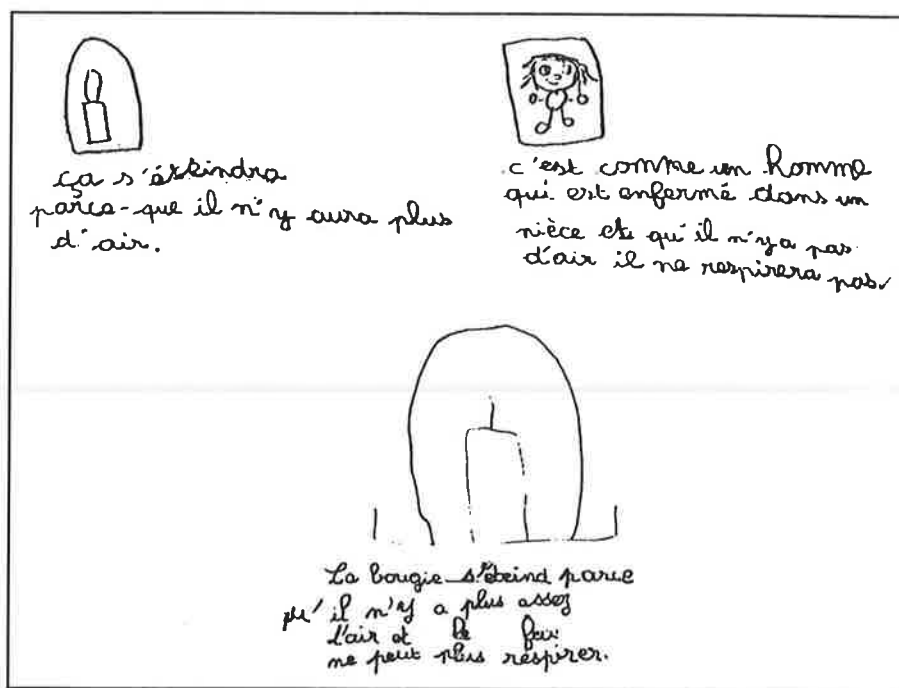 ça s'éteindra
parce-que il n'y aura plus
d'air.
c'est comme un homme
qui est enfermé dans un
nièce et qu'il n'y a pas
d'air il ne respirera pas.
La bougie s'éteind parce
qu'il n'y a plus assez
l'air et le feu
ne peut plus respirer.